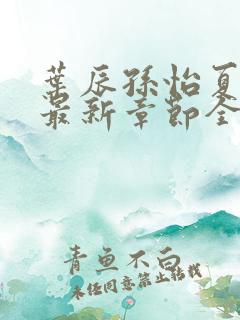 葉辰孫怡夏
最新章節全
青魚不白
未经同意禁止转载